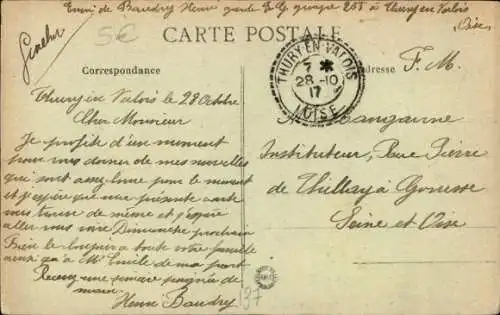 Envoi de Baudry Henri garde G.G. groupe 255 à Thury en Valois
(Oise)
5€
CARTE POSTALE
Correspondance
Adresse
F. M.
THURY-EN-VALOIS
7 *
28-10
17
OISE
Thury en Valois le 28 Octobre
Cher Monsieur
Je profite d'un moment
pour vous donner de mes nouvelles
qui sont assez bonne pour le moment
et j'espère que ma présente carte
vous trouve de même et j'espère
aller vous voir Dimanche prochain
Bien le bonjour a toute votre famille
ainsi qu'a Mr Emile de ma part
Recevez une sincère poignée de
main
Henri Baudry
137
Instituteur, Rue Pierre
de Thillay à Gonesse
Seine et Oise